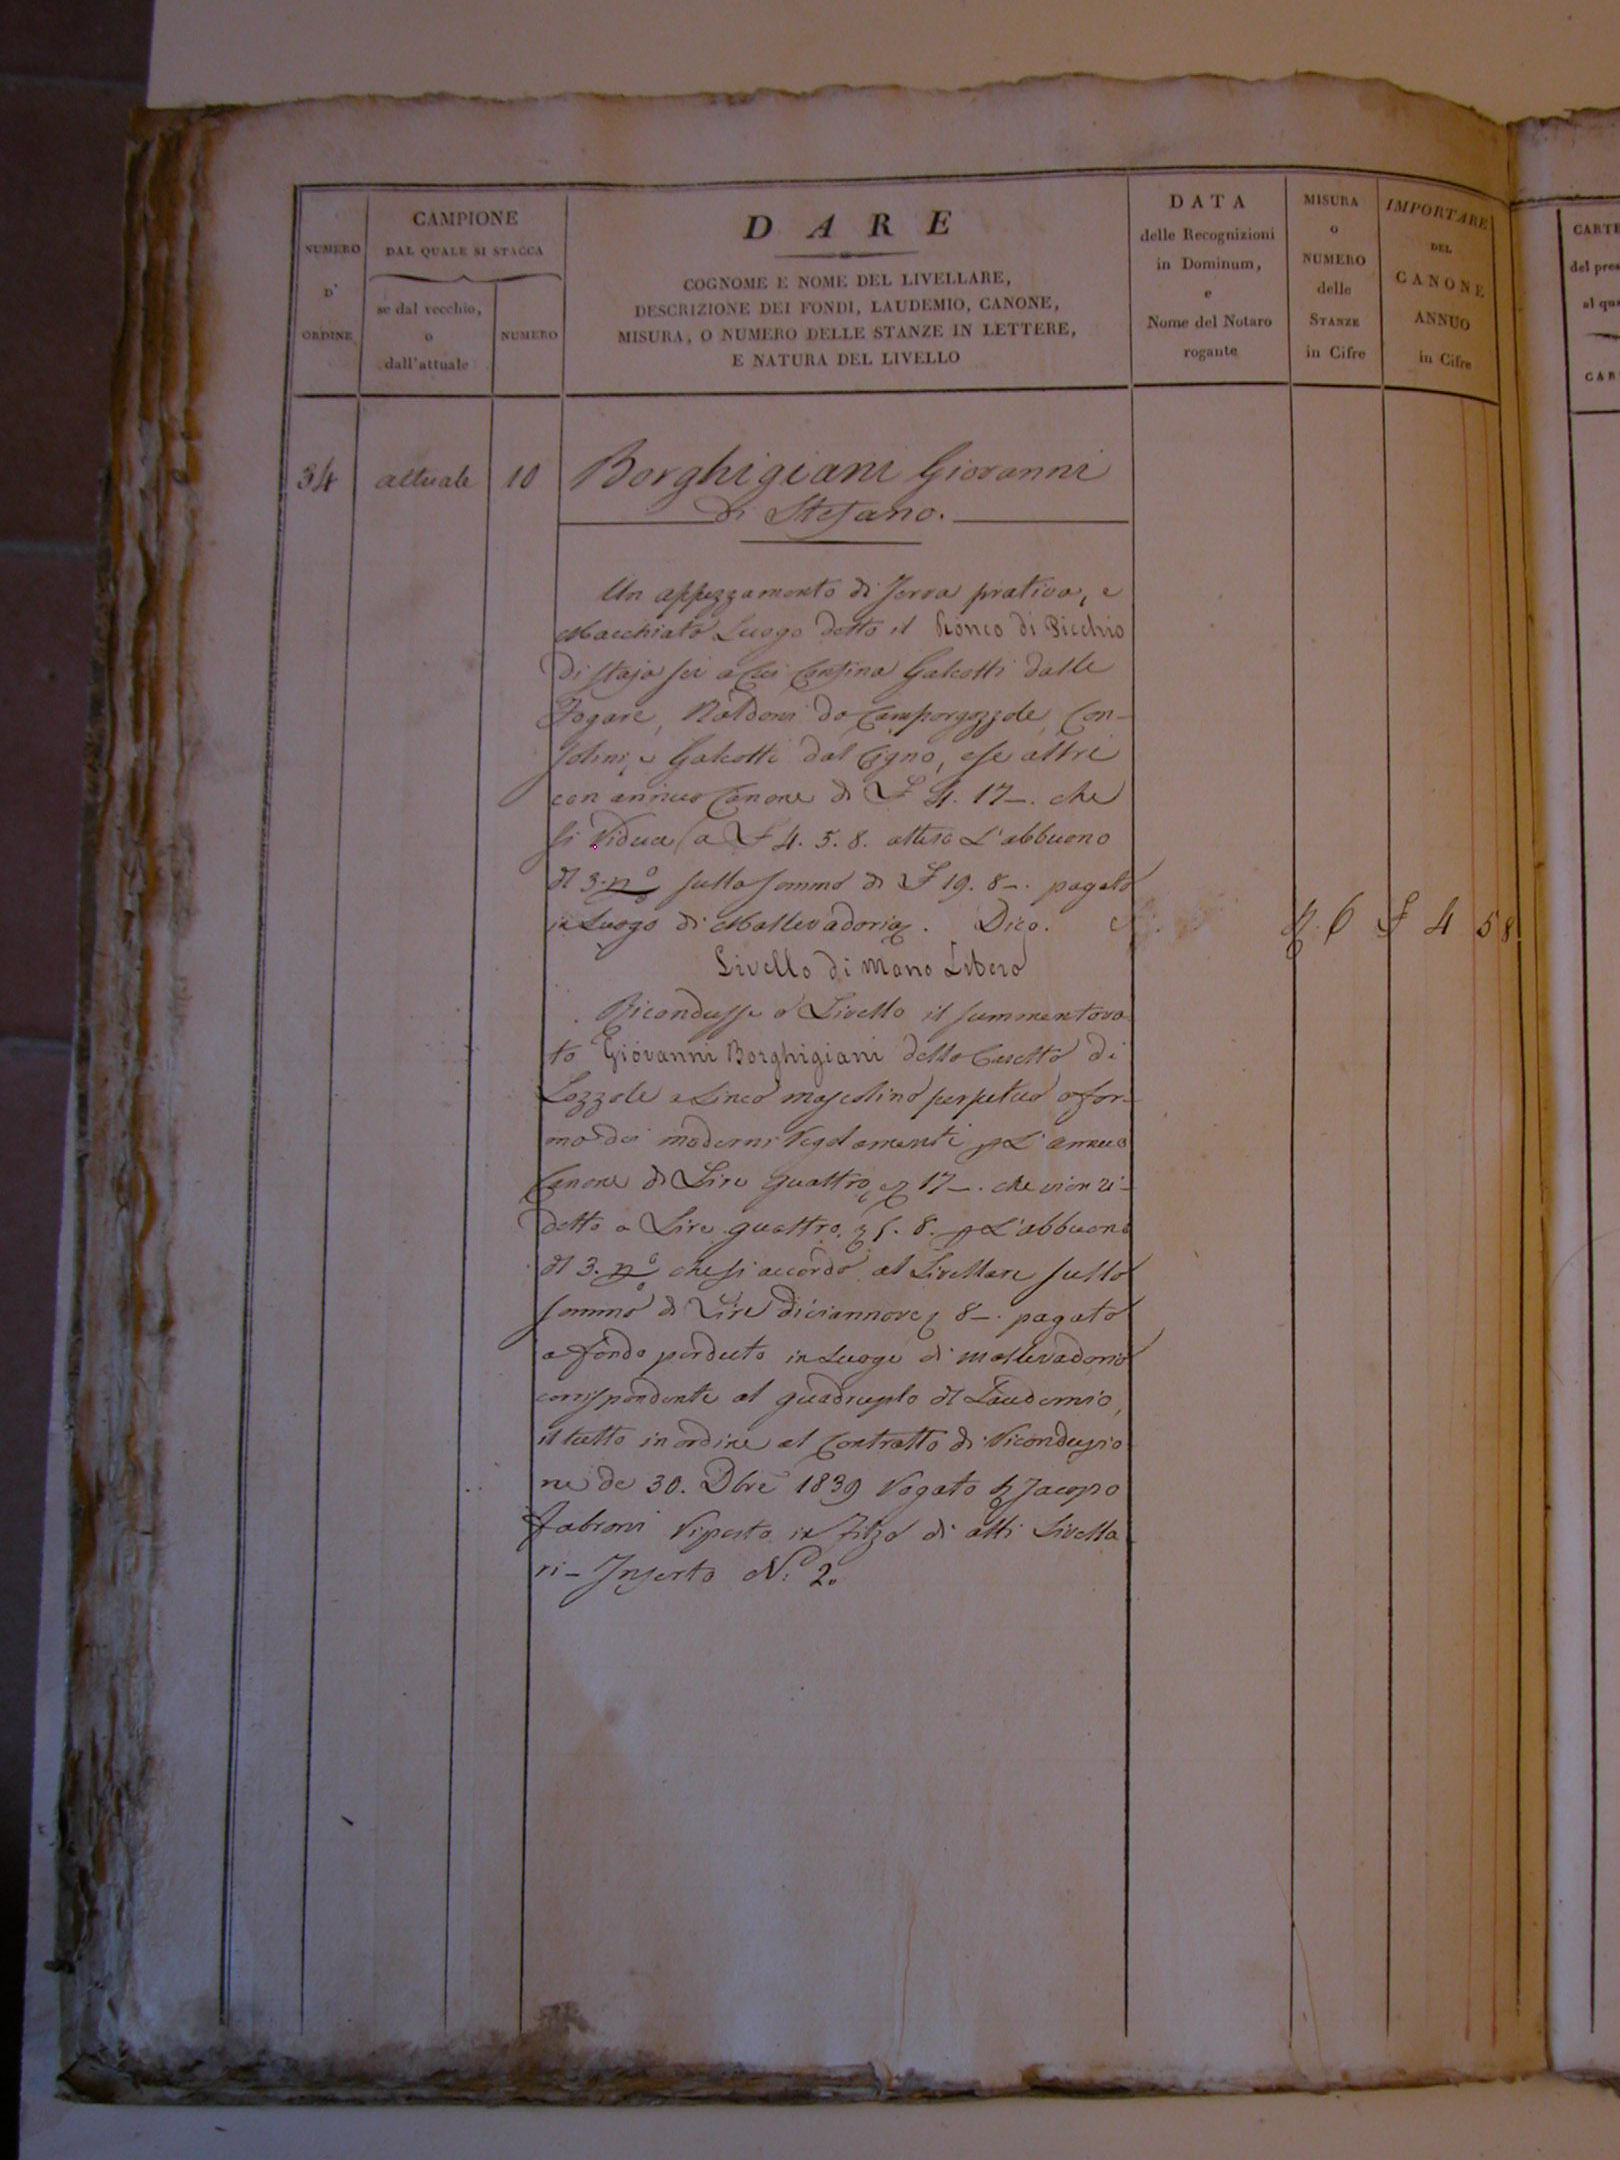 NUMERO
D'
ORDINE
CAMPIONE
DAL QUALE SI STACCA
se dal vecchio,
o
dall'attuale
NUMERO
DARE
COGNOME E NOME DEL LIVELLARE,
DESCRIZIONE DEI FONDI, LAUDEMIO, CANONE,
MISURA, O NUMERO DELLE STANZE IN LETTERE,
E NATURA DEL LIVELLO
DATA
delle Recognizioni
in Dominum,
e
Nome del Notaro
rogante
MISURA
o
NUMERO
delle
STANZE
in Cifre
IMPORTARE
DEL
CANONE
ANNUO
in Cifre
CARTE
del pres
al qu
CAR
34 attuale 10 Borghigiani Giovanni
di Stefano.
Un appezzamento di Terra prativa, e
Macchiata Luogo detto il Ronco di Picchio
di staja sei a Cui Confina Galeotti dalle
Fogare, Naldoni da Camporgozzole, Con-
solini, e Galeotti dal Cigno, e se altri
con annuo Canone di £ 4. 17 –. che
si riduce a £ 4. 5. 8. atteso L'abbuono
del 3. p% sulla somma di £ 19. 8 –. pagata
in Luogo di Mallevadoria. Dico. 6 £ 4 5 8
Livello di Mano Libera
Ricondusse a Livello il summentova-
to Giovanni Borghigiani della Casetta di
Lozzole a Linea mascolina perpetua a for-
ma dei moderni regolamenti p L'annuo
Canone di Lire quattro, e 17 –. che vien ri-
dotto a Lire quattro, e 5. 8. p L'abbuono
del 3. p% che si accorda al Livellare sulla
somma di Lire diciannove, e 8 –. pagata
a fondo perduto in Luogo di mallevadoria
corrispondente al quadruplo del Laudemio,
il tutto in ordine al Contratto di Riconduzio
ne de 30. Dbre 1839 Rogato p Jacopo
Fabroni riposto in Filza di atti Livella
ri – Inserto N. 2.